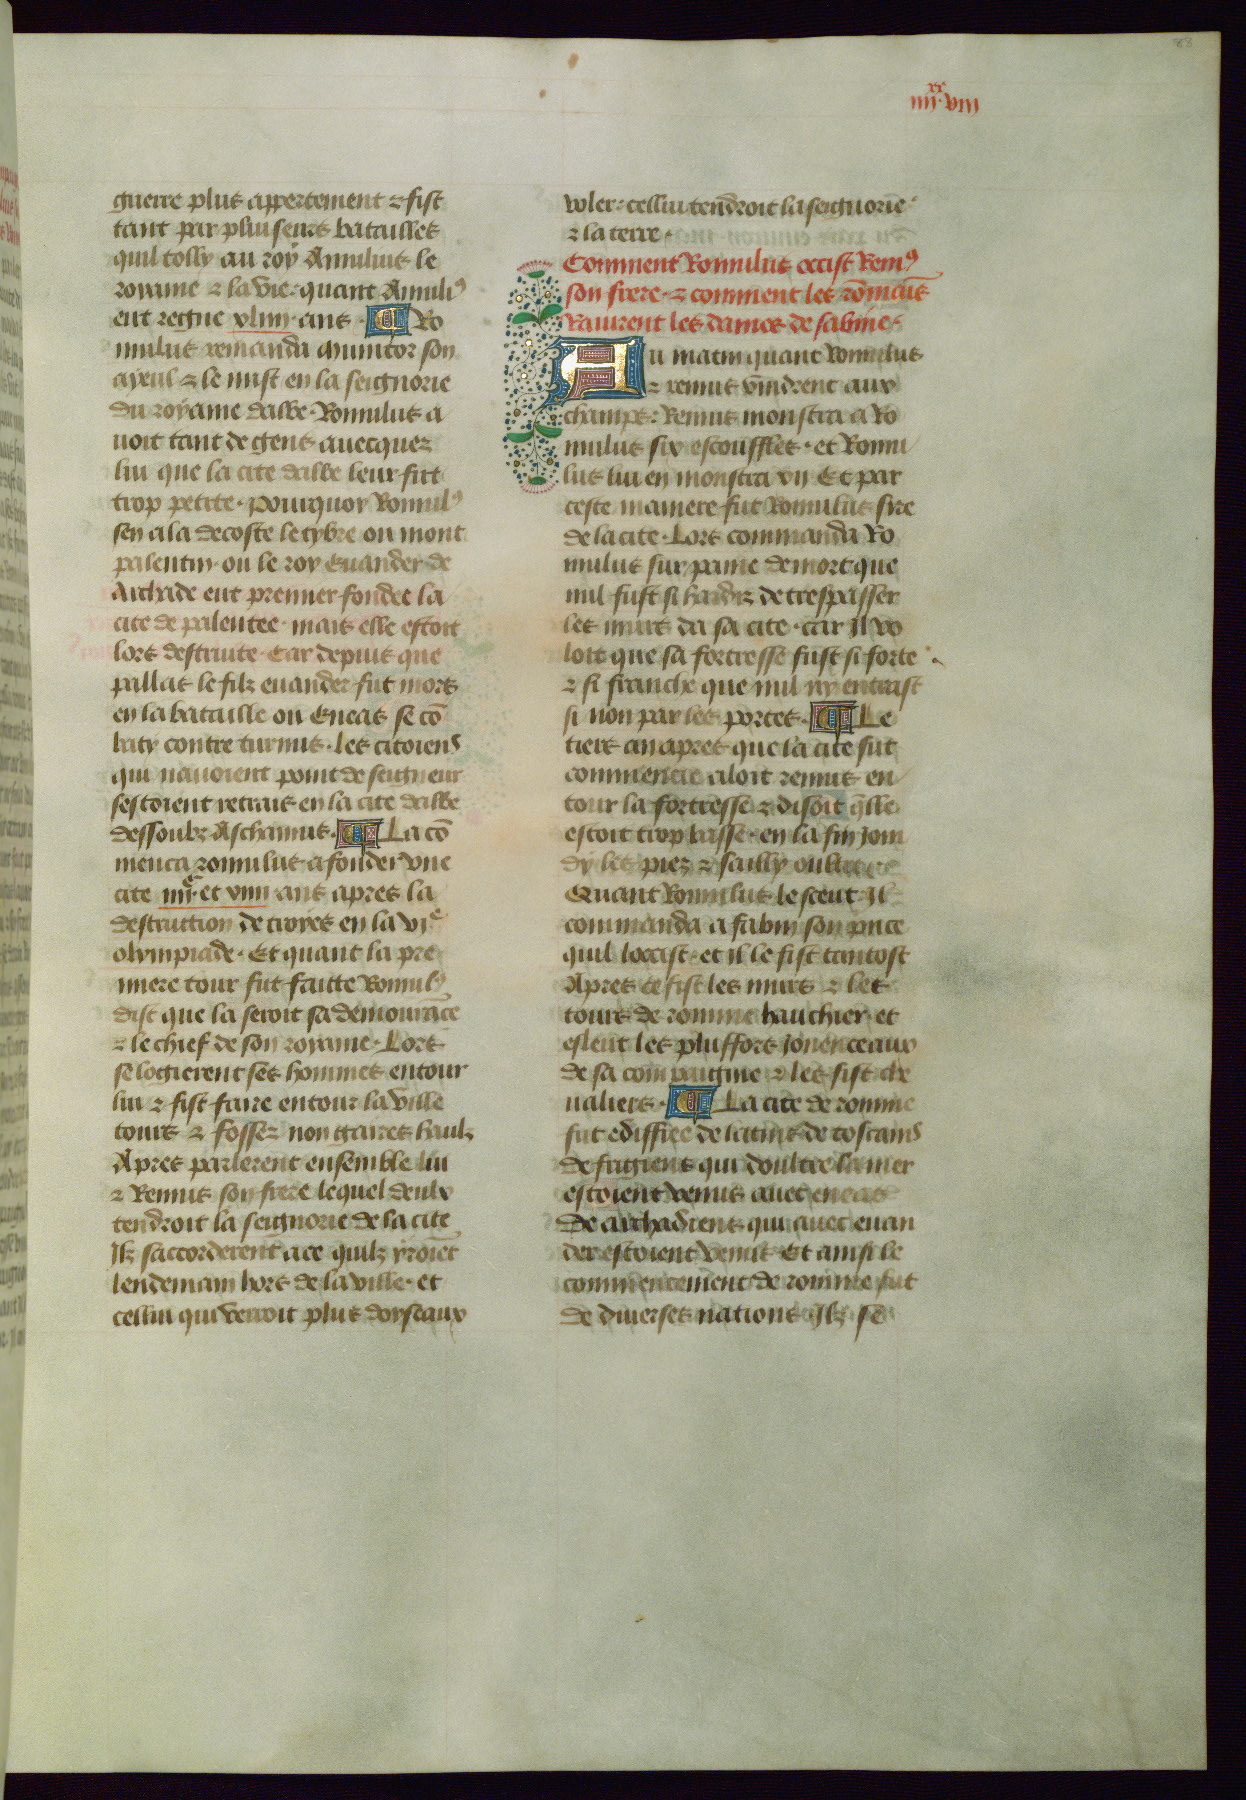 88
iiii xx viii
guerre plus appertement ⁊ fist
tant par pluiseurs batailles
quil tolly au roy Amulius le
royame ⁊ la vie. quant Amuliꝰ
eut regne xliiii. ans. Ro
mulus remanda Munitor son
ayeul ⁊ le mist en la seignorie
du royame dalbe. Romulus a
uoit tant de gens auecques
lui que la cite dalbe leur fut
trop petite. Pourquoy Romulꝰ
sen ala decoste le tybre ou mont
palentin. ou le roy Euander de
Archade eut premier fondee la
cite de palentee. mais elle estoit
lors destruite. Car depuis que
pallas le filz euander fut mors
en la bataille ou Eneas se cō
baty contre turnus. les citoiens
qui nauoient point de seigneur
sestoient retrais en la cite dalbe
dessoubz Aschanius. La cō
menca romulus a fonder vne
cite iiiic. et viiii ans apres la
destruttion de troyes en la vie
olympiade. Et quant la pre
miere tour fut faitte Romulꝰ
dist que la seroit sa demourāce
⁊ le chief de son royame. Lors
se logierent ses hommes entour
lui ⁊ fist faire entour la ville
tours ⁊ fossez non gaires haulz
Apres parlerent ensemble lui
⁊ Remus son frere lequel deulx
tendroit la seignorie de la cite
Ilz saccorderent a ce quilz yroiēt
lendemain hors de la ville. et
cellui qui verroit plus doyseaux
voler: cellui tendroit la seignorie
⁊ la terre.
Comment Romulus occist Remꝰ
son frere. ⁊ comment les rōmains
rauirent les dames de sabine.
Au matin quant Romulus
⁊ remus vindrent aux
champs: Remus monstra a Ro
mulus six escouffles. et Romu
lus lui en monstra xii Et par
ceste maniere fut Romulus sire
de la cite. Lors commanda Ro
mulus sur paine de mort que
nul fust si hardiz de trespasser
les murs da sa cite. car il vo
loit que sa fortresse fust si forte
⁊ si franche que nul ny entrast
si non par les portes. Le
tiers an apres que la cite fut
commencie aloit remus en
tour la fortresse ⁊ disoit q̄lle
estoit trop basse. en la fin join
dy les piez ⁊ sailly oultre.
Quant Romulus le sceut Il
commanda a fabin son prīce
quil loccist. et il le fist tantost
Apres ce fist les murs ⁊ les
tours de romme hauchier et
esleut les plus fors jouenceaux
de sa compaignie ⁊ les fist che
ualiers. La cite de romme
fut ediffiee de latins de toscains
de frigiens qui doultre la mer
estoient venus auec eneas
De archadiens qui auec euan
der estoient venus. Et ainsi le
commencement de romme fut
de diuerses nations. Ilz se